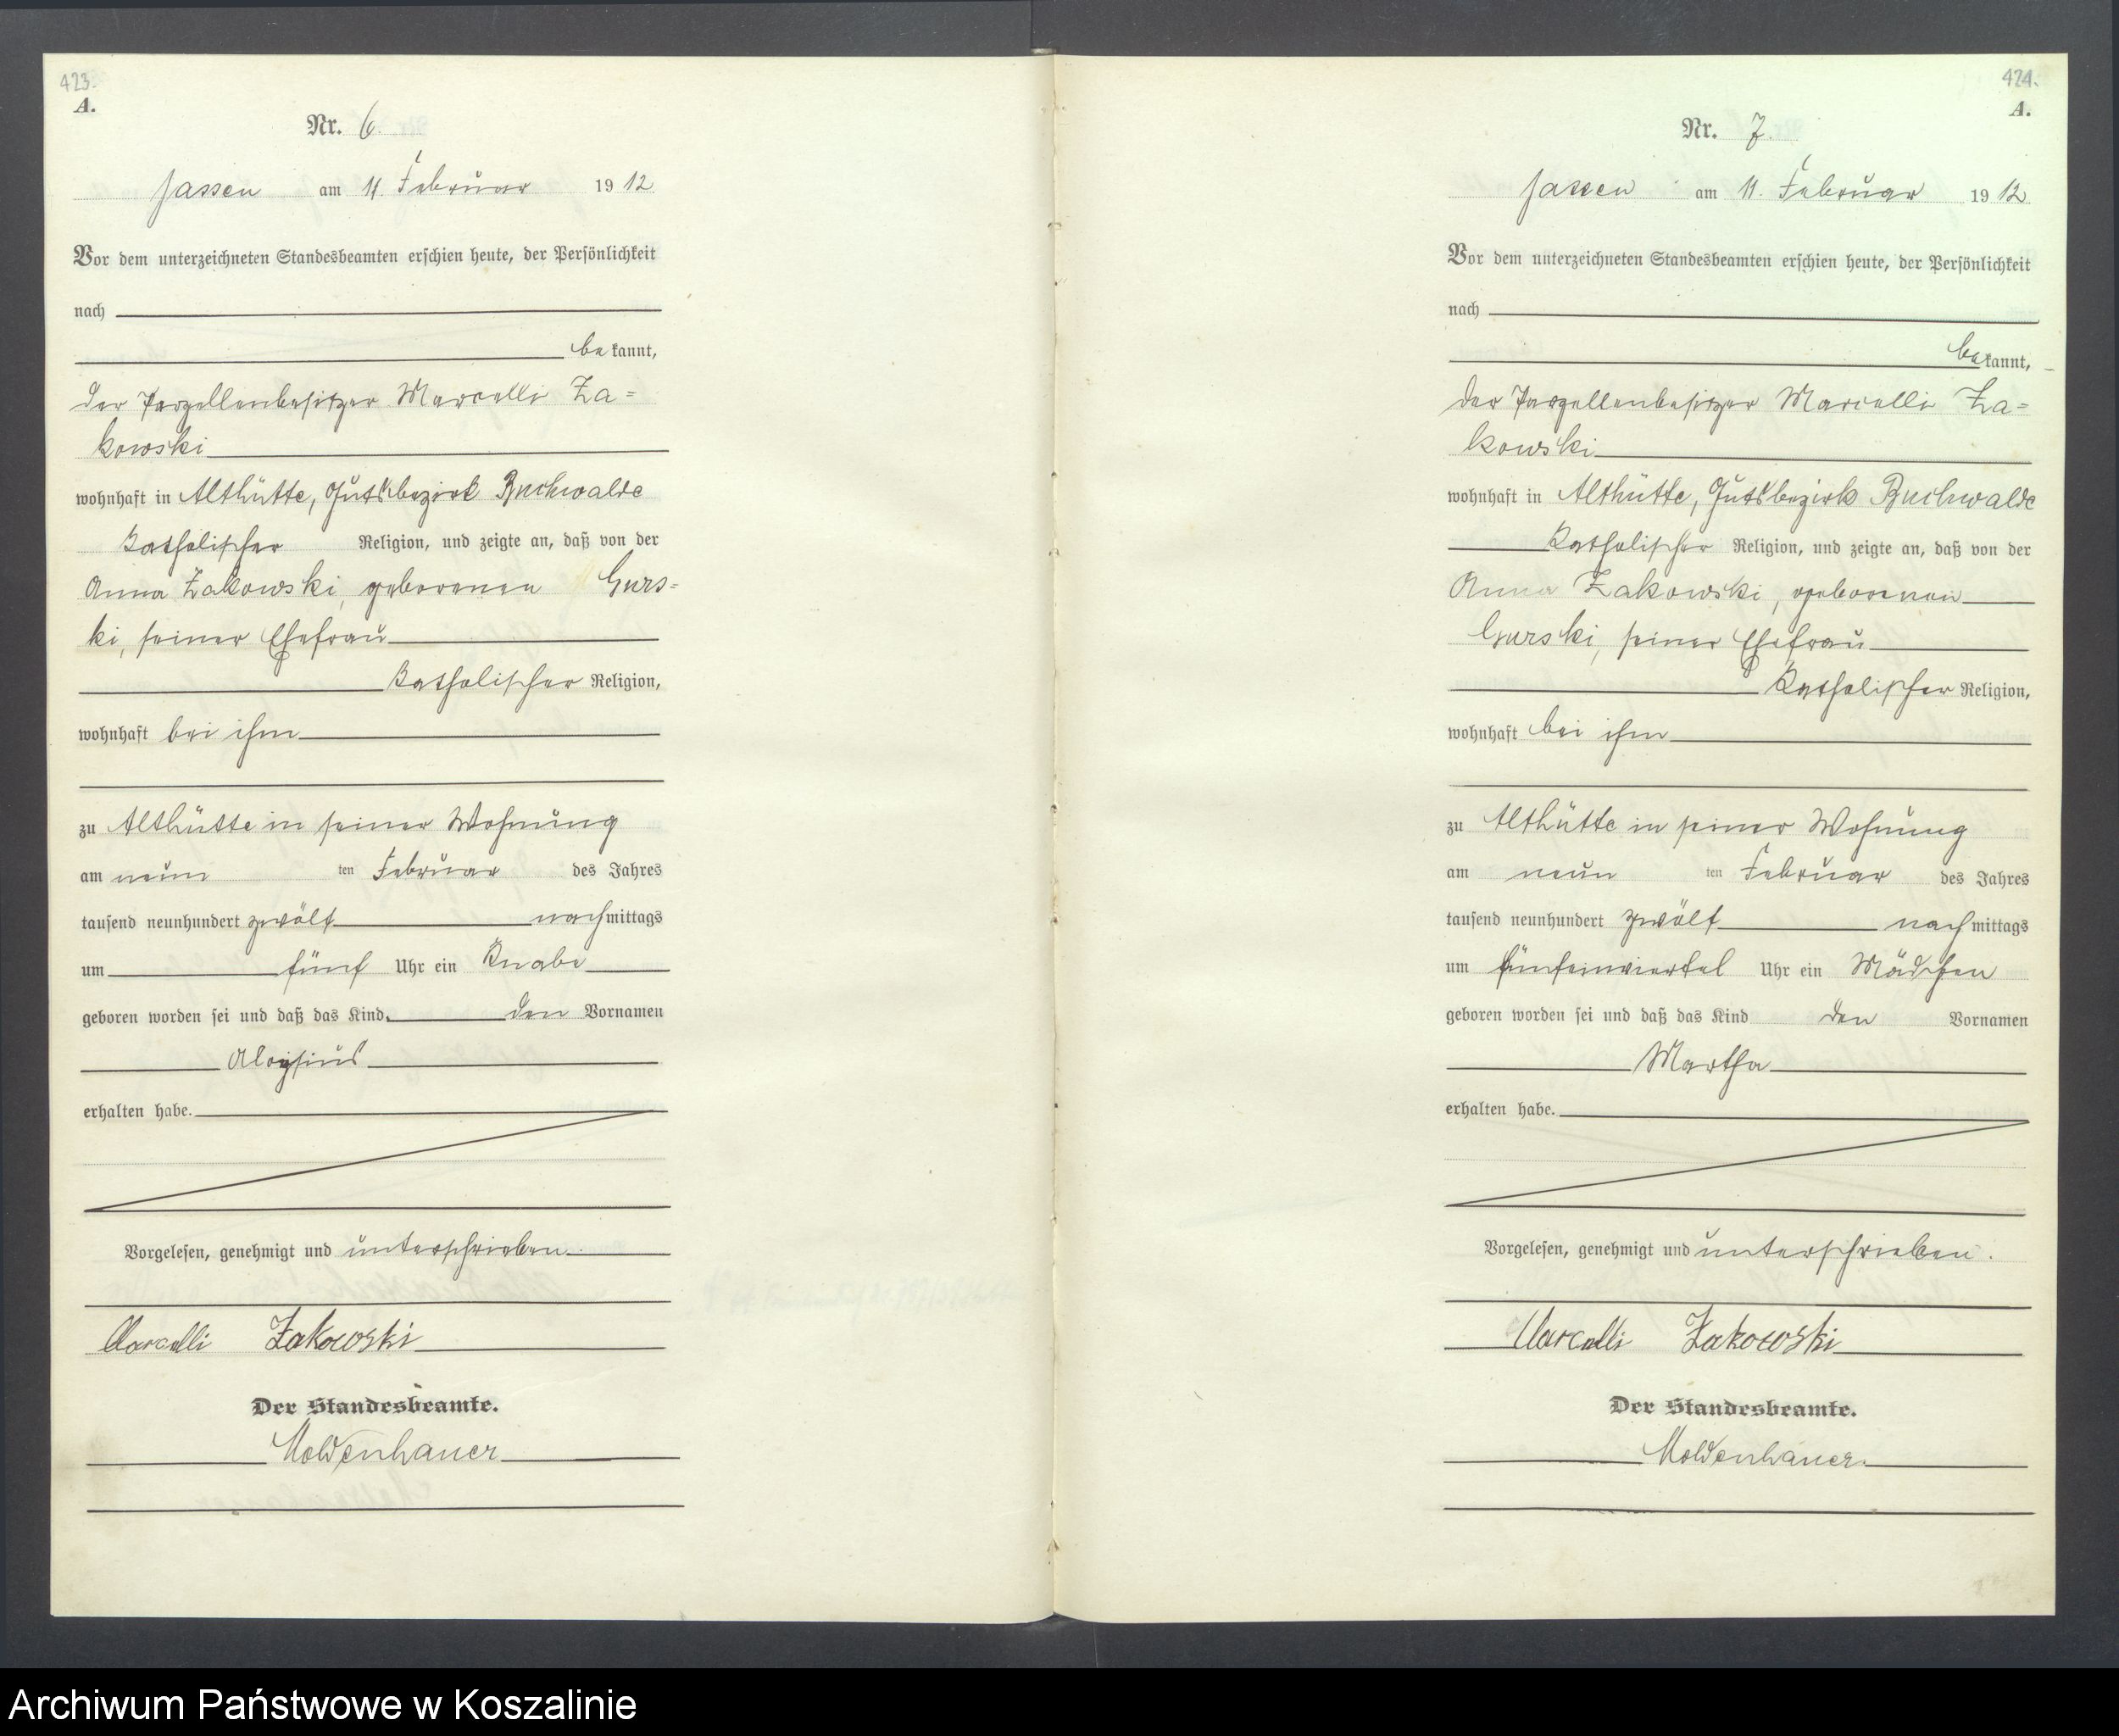 423.
A.
Nr. 6.
Jassen am 11. Februar 1912
Vor dem unterzeichneten Standesbeamten erschien heute, der Persönlichkeit
nach
bekannt,
der Parzellenbesitzer Marcelli Za=
kowski
wohnhaft in Althütte, Gutsbezirk Buchwalde
Katholischer Religion, und zeigte an, daß von der
Anna Zakowski, geborenen Gurs=
ki, seiner Ehefrau
Katholischer Religion,
wohnhaft bei ihm
zu Althütte in seiner Wohnung
am neun ten Februar des Jahres
tausend neunhundert zwölf nachmittags
um fünf Uhr ein Knabe
geboren worden sei und daß das Kind den Vornamen
Aloysius
erhalten habe.
Vorgelesen, genehmigt und unterschrieben
Marcelli Zakowski
Der Standesbeamte.
Moldenhauer
424.
A.
Nr. 7.
Jassen am 11. Februar 1912
Vor dem unterzeichneten Standesbeamten erschien heute, der Persönlichkeit
nach
bekannt,
der Parzellenbesitzer Marcelli Za=
kowski
wohnhaft in Althütte, Gutsbezirk Buchwalde
Katholischer Religion, und zeigte an, daß von der
Anna Zakowski, geborenen
Gurski, seiner Ehefrau
Katholischer Religion,
wohnhaft bei ihm
zu Althütte in seiner Wohnung
am neun ten Februar des Jahres
tausend neunhundert zwölf nachmittags
um fünfeinviertel Uhr ein Mädchen
geboren worden sei und daß das Kind den Vornamen
Martha
erhalten habe.
Vorgelesen, genehmigt und unterschrieben.
Marcelli Zakowski
Der Standesbeamte.
Moldenhauer.
Archiwum Państwowe w Koszalinie